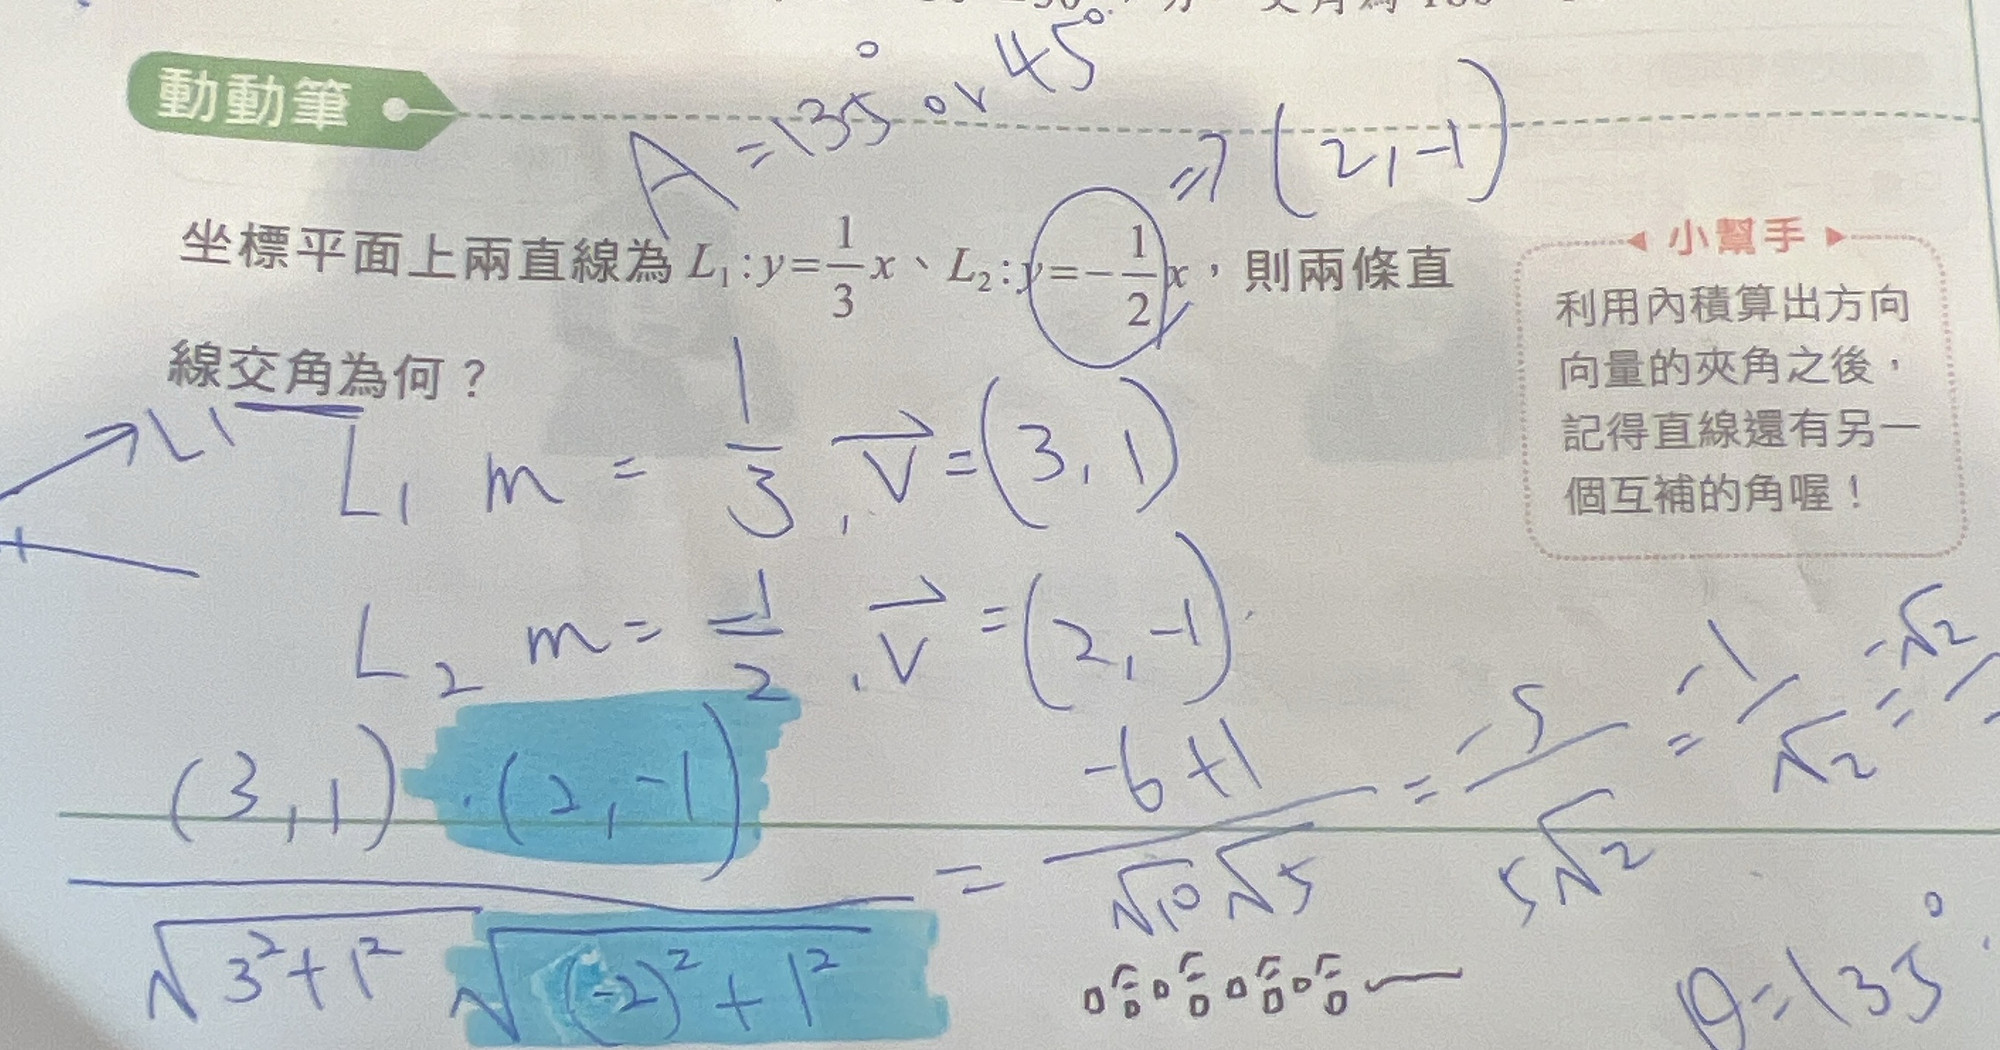 動動筆
A = 135° or 45°
⇒ (2, -1)
坐標平面上兩直線為 L₁:y=1/3x、L₂:y=-1/2x，則兩條直
線交角為何？
小幫手
利用內積算出方向
向量的夾角之後，
記得直線還有另一
個互補的角喔！
L1
L₁ m = 1/3, v⃗ = (3, 1)
L₂ m = -1/2, v⃗ = (2, -1)
(3, 1)·(2, -1) / √3²+1² √(-2)²+1² = -6+1 / √10 √5 = -5 / 5√2 = -1 / √2 = -√2 /
哈哈哈哈
θ = 135°